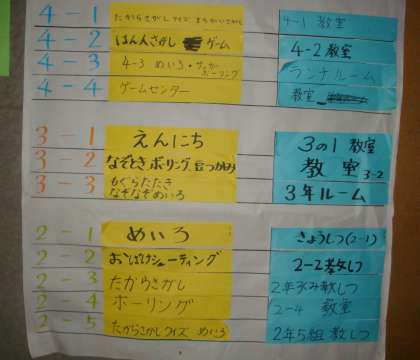 4-1 たからさがし クイズ まちがいさがし 4-1 教室
4-2 はんんさがし ゲーム 4-2 教室
4-3 4-3 めいろ・サッカーボーリング ランチルーム
4-4 ゲームセンター 教室
3-1 えんにち 3の1 教室
3-2 なぞとき ボーリング 豆つかみ 教室 3-2
3-3 もぐらたたき なぞなぞめいろ 3年ルーム
2-1 めいろ きょうしつ(2-1)
2-2 おばけシューティング 2-2 教しつ
2-3 たからさがし 2年3組 教しつ
2-4 ボーリング 2-4 教室
2-5 たからさがし クイズ めいろ 2年5組 教しつ